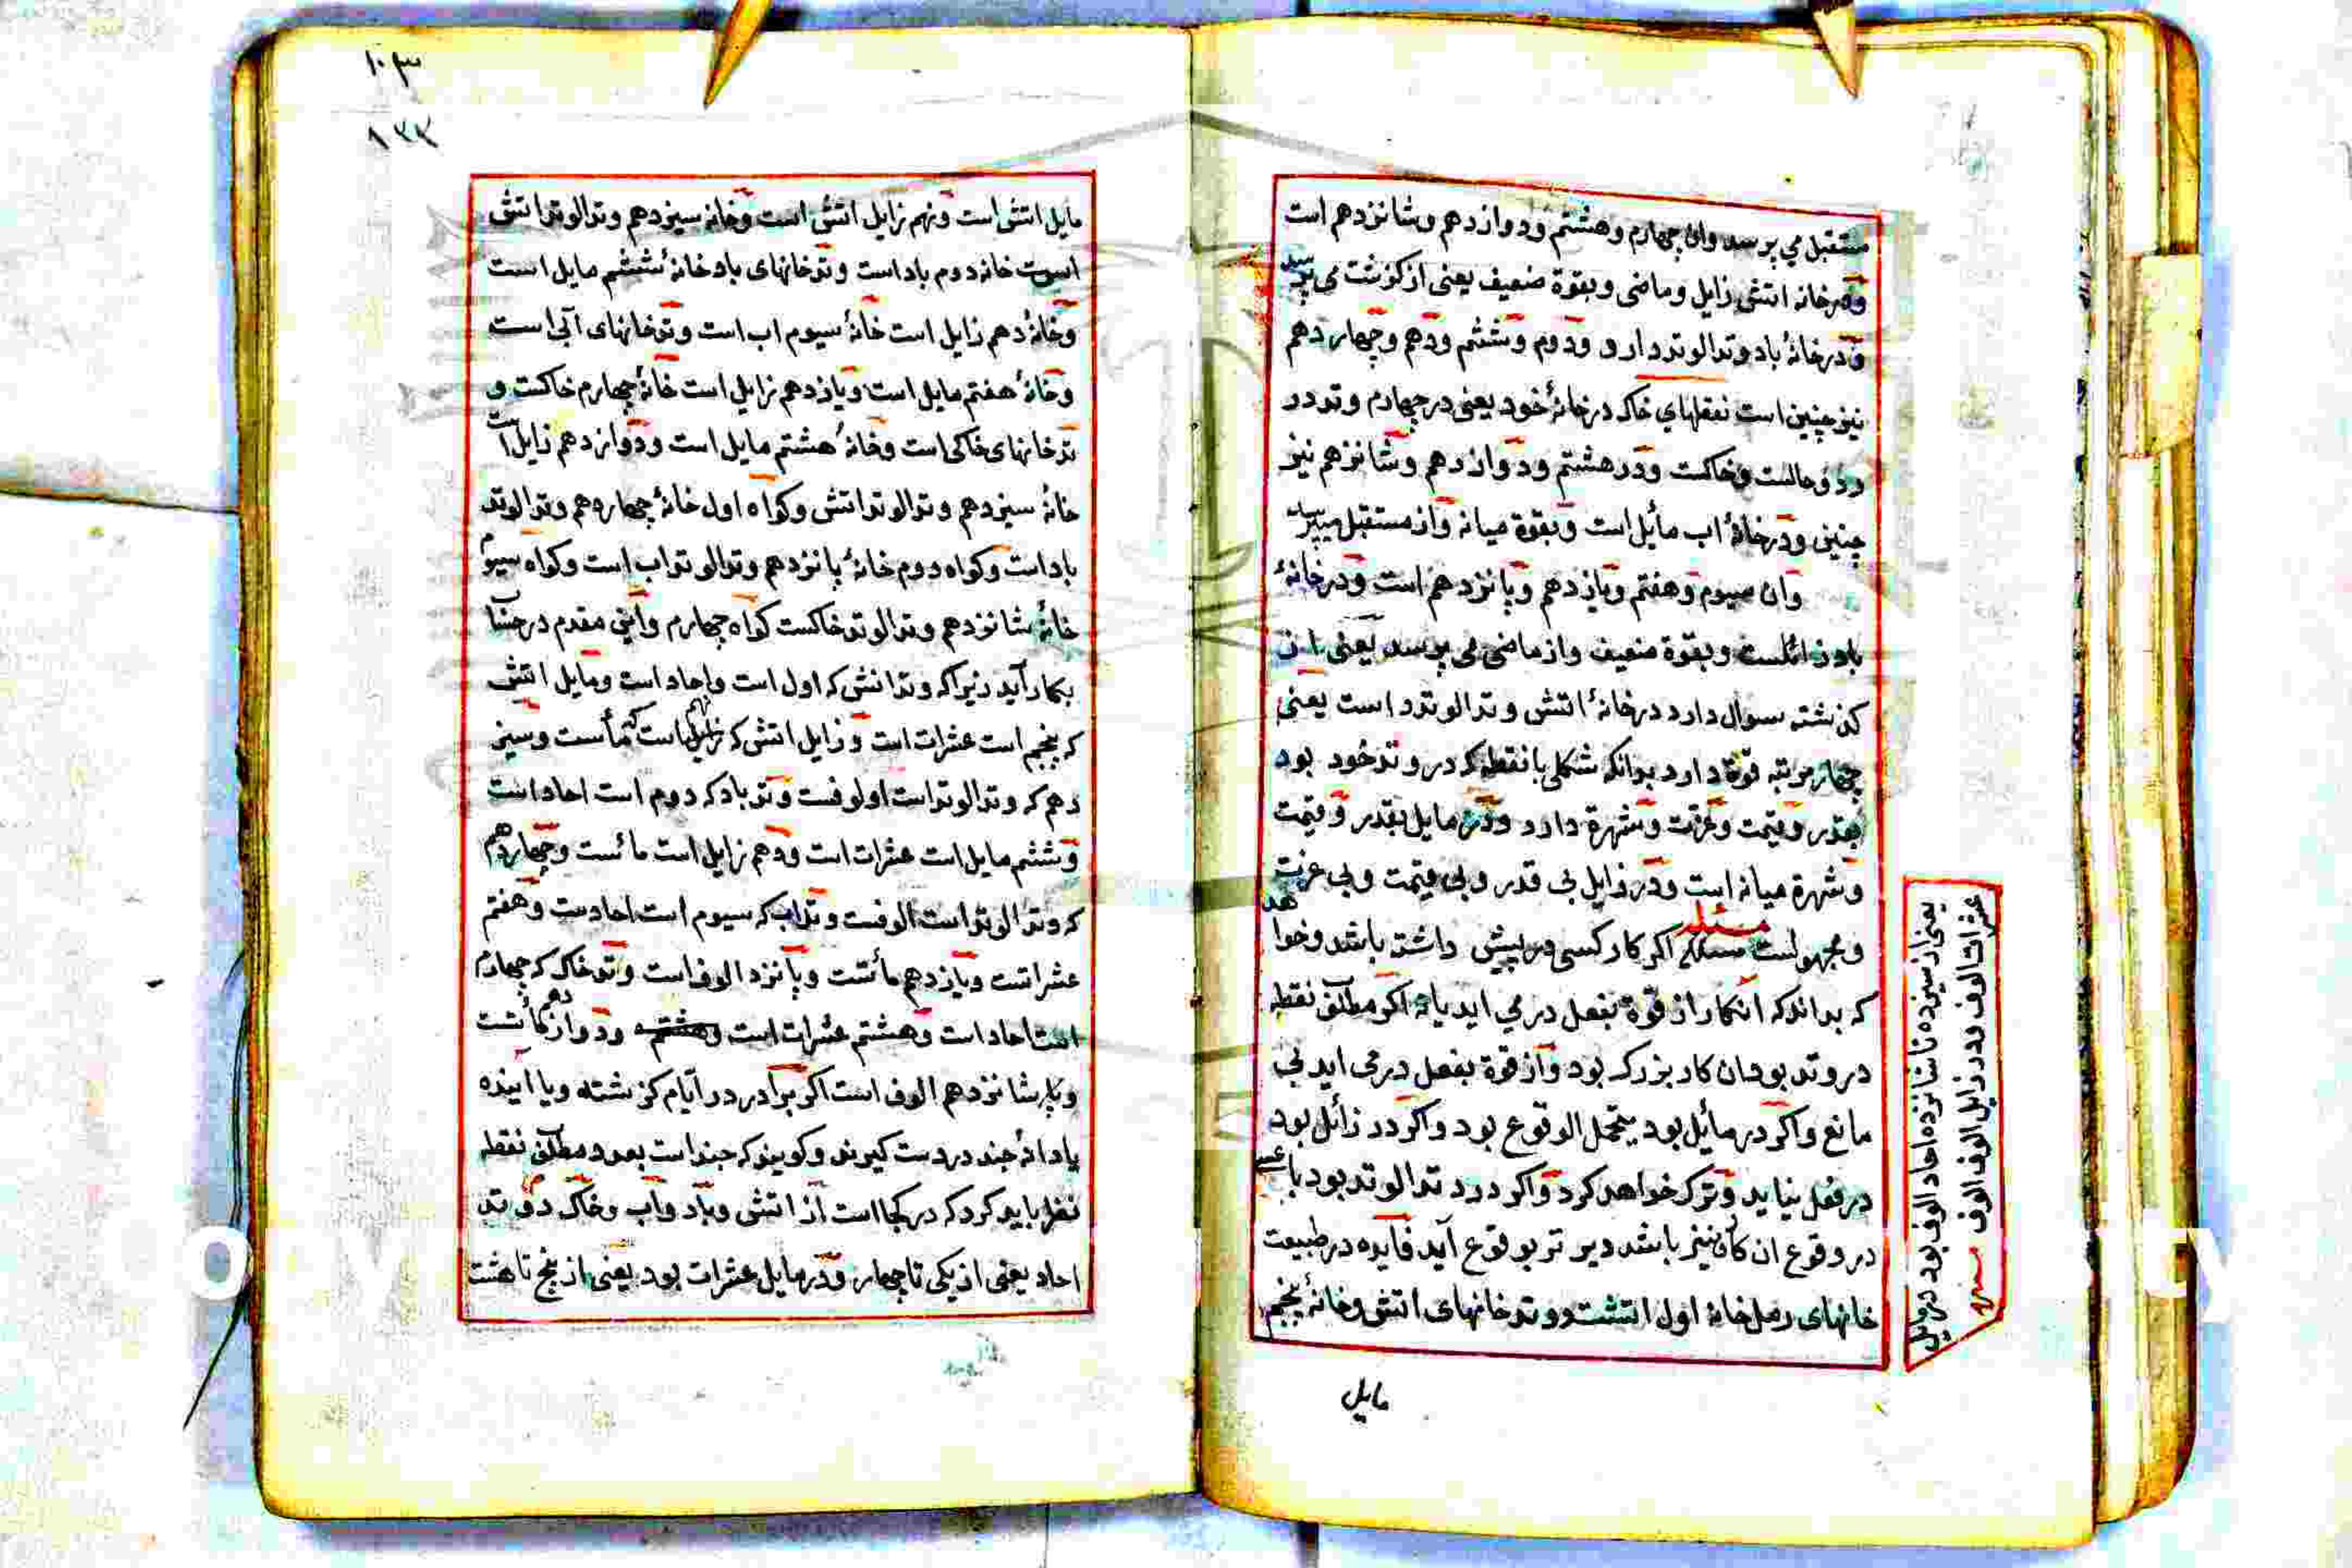 مستقبل می پرسد وان چهارم وهشتم ودوازدهم وشانزدهم است
وهرخانه اتشی زایل وماضی وبقوة ضعیف یعنی از کوشت می پرسد
ودرخانهٔ باد وتدالوتد دارد ودوم وششم ودهم وچهاردهم
نیز چنین است نقطهای خاک درخانهٔ خود یعنی درچهارم وتد در
وخاکست ودر هشتم ودوازدهم وشانزهم نیز
چنین ودرخانهٔ اب مائل است وبقوة میانه واز مستقبل میپرسد
وان سیوم وهفتم ویازدهم وپانزدهم است ودرخانهٔ
باد زائلست وبقوة ضعیف واز ماضی می پرسد یعنی از
کذشته سوال دارد درخانهٔ اتش وتدالوتد است یعنی
چهار مرتبه قوة دارد بدانکه شکلی یا نقطه که در وتد خود بود
بقدر وقیمت وعزت وشهرة دارد ودر مایل بقدر وقیمت
وشهرة میانه است ودر زایل بی قدر وبی قیمت وبی عزت
ومجهولست مسئله اکر کار کسی در پیش داشته باشد وخواهد
که بداند که انکار از قوة بفعل در می اید یا نه اکر مطلق نقطه
در وتد بود ان کار بزرک بود واز قوة بفعل در می اید بی
مانع واکر در مائل بود محتمل الوقوع بود واکر در زائل بود
در فعل نیاید وترک خواهد کرد واکر در وتدالوتد بود
در وقوع ان کار نیز باشد دیر تر بوقوع آید فایده در طبیعت
خانهای رمل خانهٔ اول اتشست ووتد خانهای اتشی وخانهٔ پنجم
مایل
یعنی از سیزده تا شانزده احاد الوف بود در مایل
عشرات الوف ودر زایل الوف الوف
۱۰۳
۱۳۳
مایل اتش است ونهم زایل اتش است وخانه سیزدهم وتدالوتد اتش
است خانه دوم باد است وتد خانهای باد خانهٔ ششم مایل است
وخانهٔ دهم زایل است خانهٔ سیوم اب است وتد خانهای آبی است
وخانهٔ هفتم مایل است ویازدهم زایل است خانهٔ چهارم خاکست و
تد خانهای خاکی است وخانهٔ هشتم مایل است ودوازدهم زایل است
خانهٔ سیزدهم وتدالوتد اتش وکواه اول خانهٔ چهاردهم وتدالوتد
باد است وکواه دوم خانهٔ پانزدهم وتدالوتد اب است وکواه سیوم
خانهٔ شانزدهم وتدالوتد خاکست کواه چهارم واین مقدم در حساب
بکار آید زیرا که وتد اتش که اول است واحاد است ومایل اتش
که پنجم است عشرات است وزایل اتش که نهم است مأست وسیز
دهم که وتدالوتد است اولوفست وتد باد که دوم است احاد است
وششم مایل است عشرات است ودهم زایل است مائست وچهاردهم
که وتدالوتد است الوفست وتد اب که سیوم است احادست وهفتم
عشراتست ویازدهم مأتست وپانزد الوف است وتد خاک که چهارم
است احاد است وهشتم عشرات است وهشتم ودوازدهم مأتست
وشانزدهم الوف است اکر برادر در ایام کزشته ویا اینده
یا دانهٔ چند در دست کیرند وکویند که چند است بعدد مطلق نقطه
نظر باید کرد که در کجا است از اتش وباد واب وخاک در وتد
احاد یعنی از یکی تا چهار ودر مایل عشرات بود یعنی از پنج تا هشت